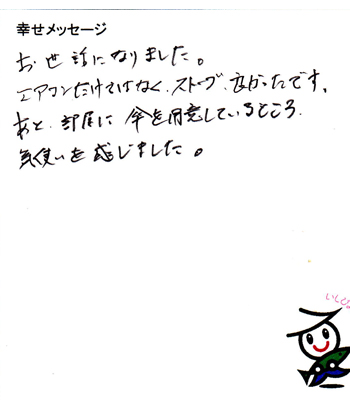 幸せメッセージ
お世話になりました。
エアコンだけではなく、ストーブ、良かったです。
あと、部屋に傘を用意しているところ、
気使いを感じました。